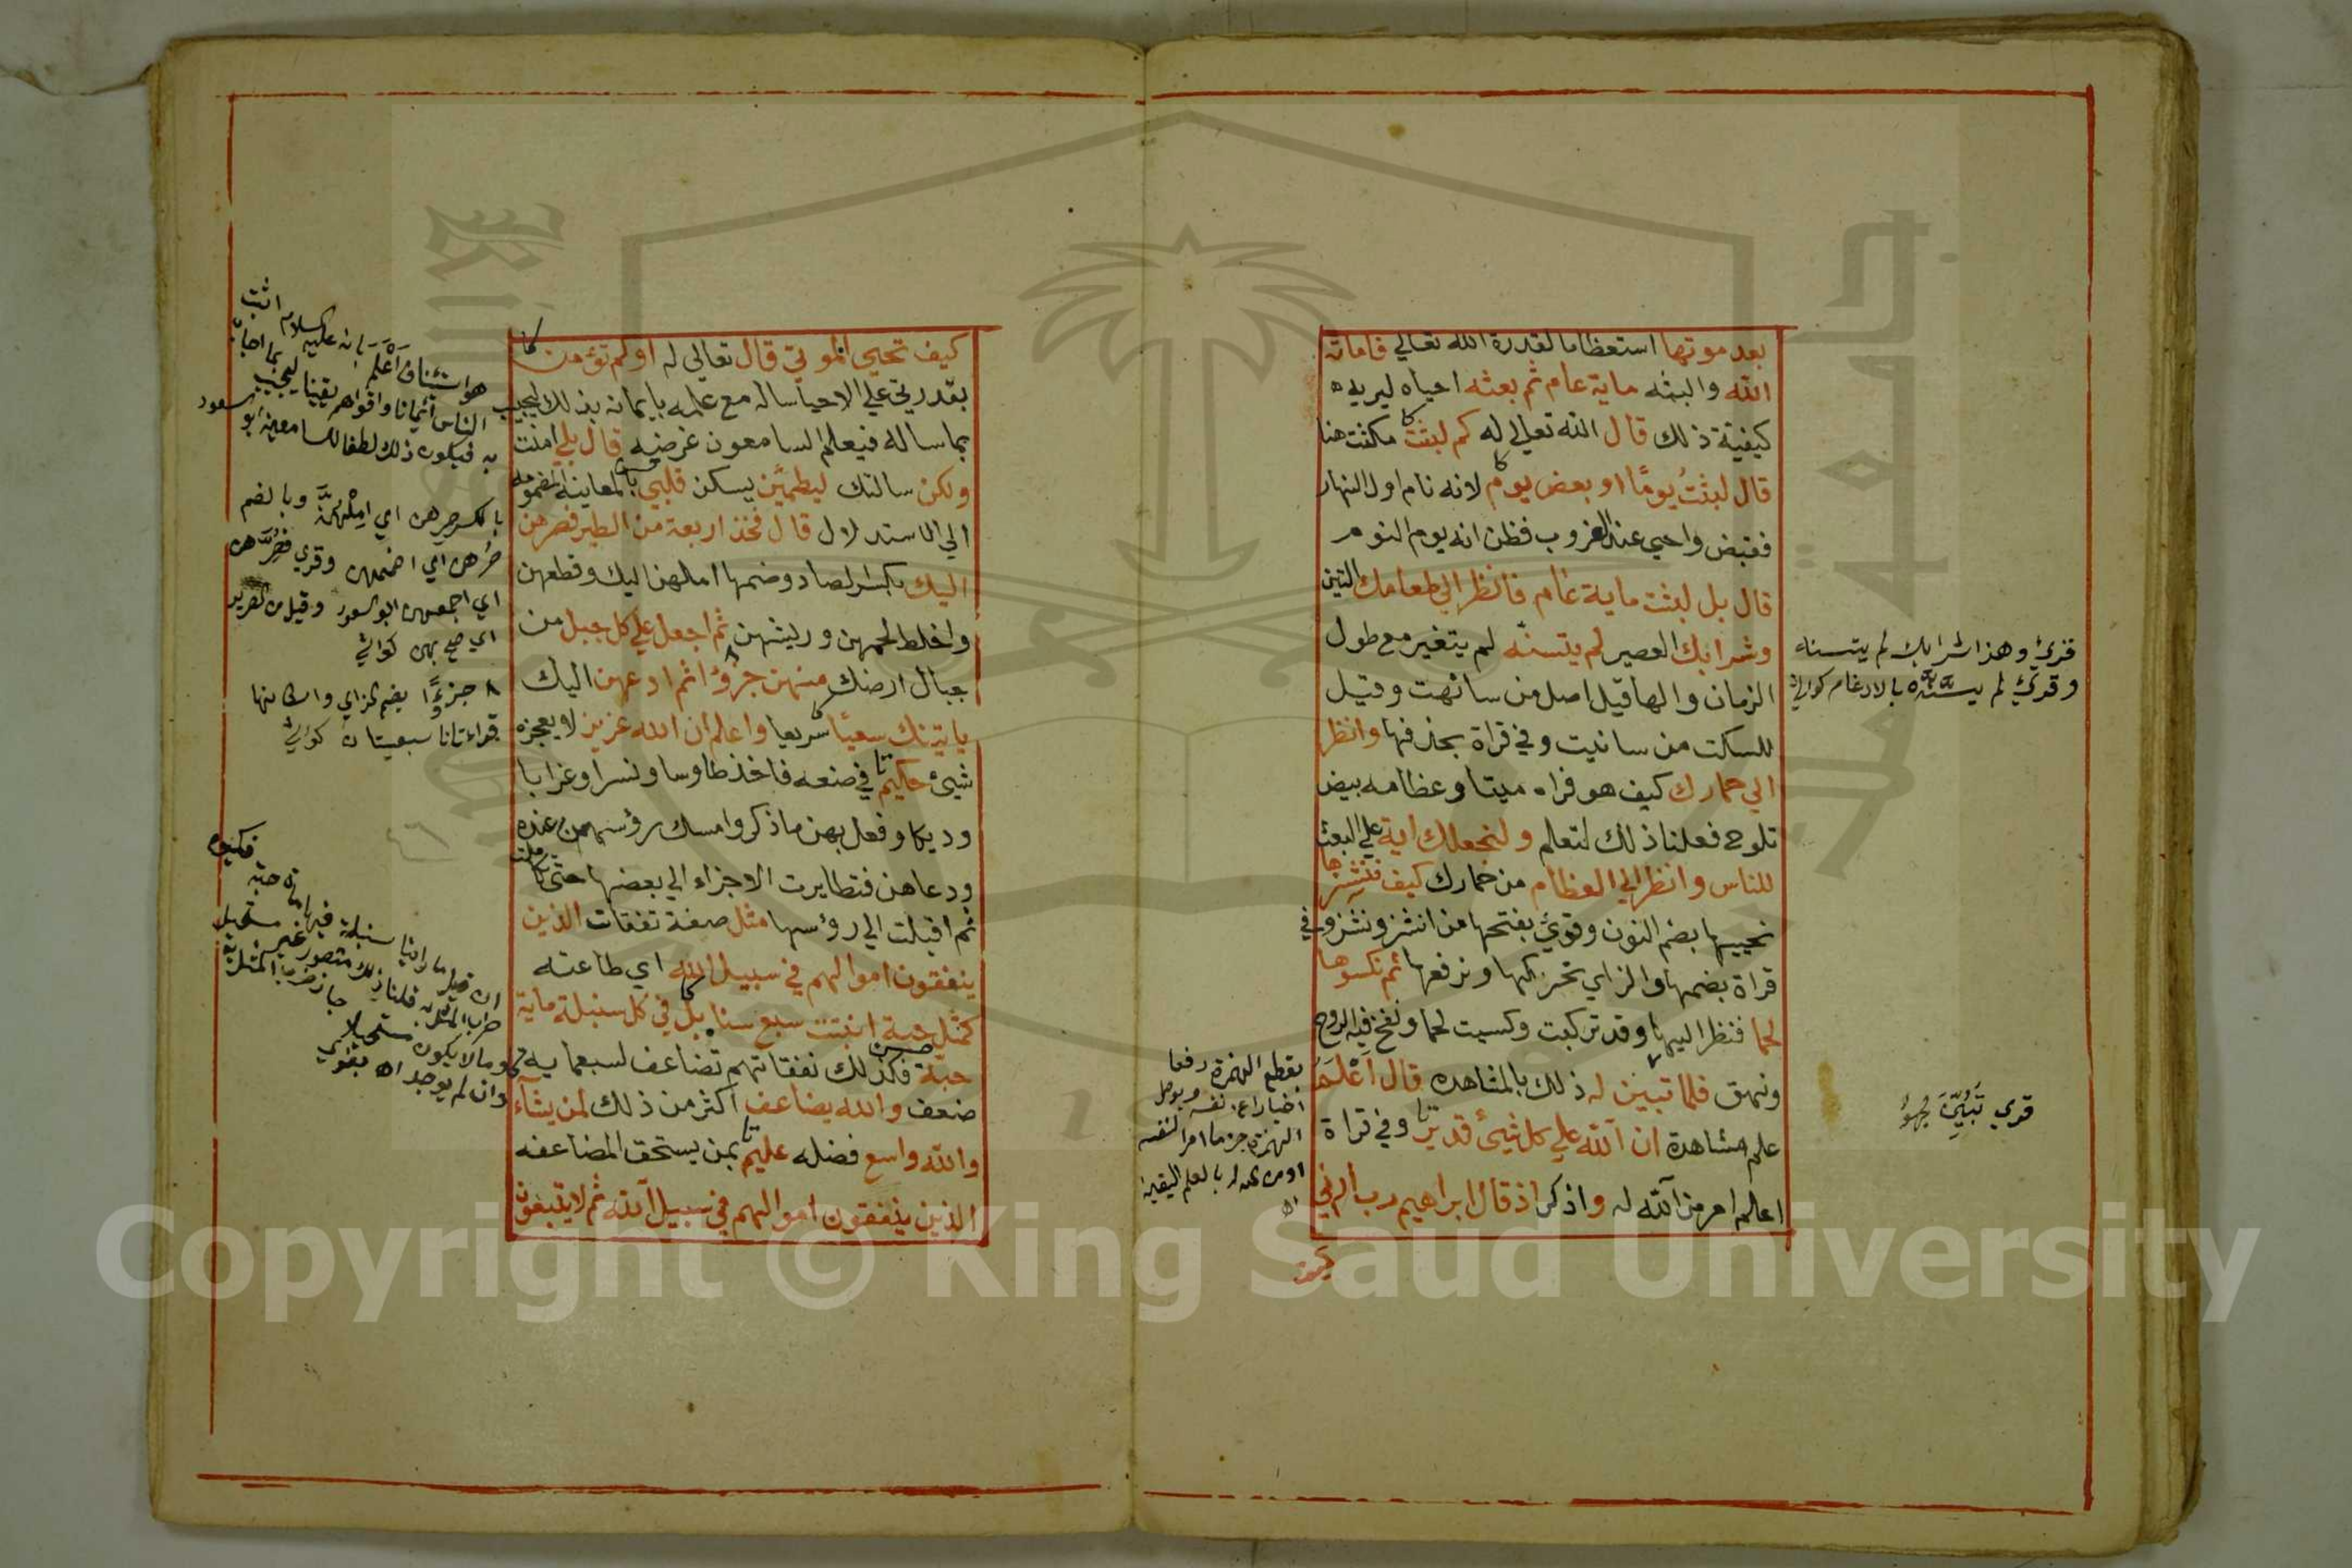 بعد موتها استعظاما لقدرة الله تعالي فاماته
الله والبثه ماية عام ثم بعثه احياه ليريه
كيفية ذلك قال الله تعالي له كم لبثت مكثت هنا
قال لبثتُ يومًا او بعض يوم لانه نام اول النهار
فقبض واحيي عند الغروب فظن انه يوم النوم
قال بل لبثت ماية عام فانظر الي طعامك التين
وشرابك العصير لم يتسنه لم يتغير مع طول
الزمان والها قيل اصل من سانهت وقيل
للسكت من سانيت وفي قراة بحذفها وانظر
الي حمارك كيف هو فراه ميتا وعظامه بيض
تلوح فعلنا ذلك لتعلم ولنجعلك اية علي البعث
للناس وانظر الي العظام من حمارك كيف ننشزها
نحييها بضم النون وقرئ بفتحها من انشز ونشز وفي
قراة بضمها والزاي نحركها ونرفعها ثم نكسوها
لحما فنظر اليها وقد تركبت وكسيت لحما ونفخ فيه الروح
ونهق فلما تبين له ذلك بالمشاهده قال اعلم
علم مشاهدة ان الله علي كل شيئ قدير وفي قراة
اعلم امر من الله له واذكر اذ قال ابراهيم رب ارني
كيف
قرئ وهذا شرابك لم يتسناه
وقرئ لم يسَّنَّه بالادغام كواشي
بقطع الهمزة رفعا
اخبارا عن نفسه وبوصل
الهمزة جزما امرا لنفسه
كيف تحيي الموتي قال تعالي له اولم تؤمن
بقدرتي علي الاحيا ساله مع علمه بايمانه بذلك ليجيب
بما ساله فيعلم السامعون غرضه قال بلي امنت
ولكن سالتك ليطمئن يسكن قلبي بالمعاينة المضمومه
الي الاستدلال قال فخذ اربعة من الطير فصرهن
اليك بكسر الصاد وضمها املهن اليك وقطعهن
واخلط لحمهن وريشهن ثم اجعل علي كل جبل من
جبال ارضك منهن جزؤا ثم ادعهن اليك
ياتينك سعيًا سريعا واعلم ان الله عزيز لا يعجزه
شيئ حكيم في صنعه فاخذ طاوسا ونسرا وغرابا
وديكا وفعل بهن ما ذكر وامسك رؤسهن عنده
ودعاهن فتطايرت الاجزاء الي بعضها حتي تكاملت
ثم اقبلت الي رؤسها مثل صفة نفقات الذين
ينفقون اموالهم في سبيل الله اي طاعته
كمثل حبة انبتت سبع سنابل في كل سنبلة ماية
حبة فكذلك نفقاتهم تضاعف لسبعماية
ضعف والله يضاعف اكثر من ذلك لمن يشآء
والله واسع فضله عليم بمن يستحق المضاعفه
الذين ينفقون اموالهم في سبيل الله ثم لا يتبعون
بالكسر صِرهن اي امِلهنَّ وبالضم
صُرهن اي اضممهن وقري فصُرَّهن
اي اجمعهن ابو السعود
جزءًا بضم الزاي واسكانها
قراءتان سبعيتان كواشي
Copyright © King Saud University